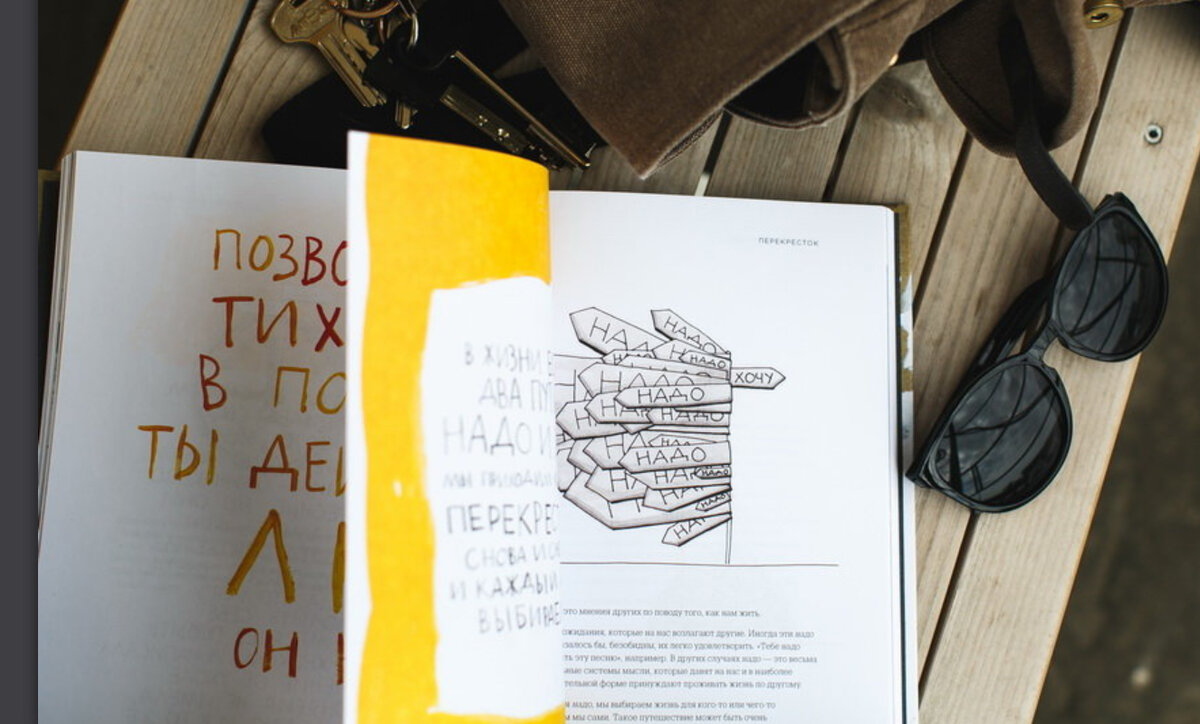 ПОЗВО
ТИХ
В ПО
ТЫ ДЕЙ
Л
ОН
В ЖИЗНИ
ДВА ПУ
НАДО И
МЫ ПРИХОДИМ
ПЕРЕКРЕС
СНОВА И СН
И КАЖДЫЙ
ВЫБИРАЕ
ПЕРЕКРЕСТОК
НАДО
НАДО
НАДО
ХОЧУ
НАДО
НАДО
НАДО
НАДО
НАДО
НАДО
это мнения других по поводу того, как нам жить.
ожидания, которые на нас возлагают другие. Иногда эти надо
залось бы, безобидны, их легко удовлетворить. «Тебе надо
ть эту песню», например. В других случаях надо — это весьма
ные системы мысли, которые давят на нас и в наиболее
тельной форме принуждают проживать жизнь по-другому.
надо, мы выбираем жизнь для кого-то или чего-то
м мы сами. Такое путешествие может быть очень